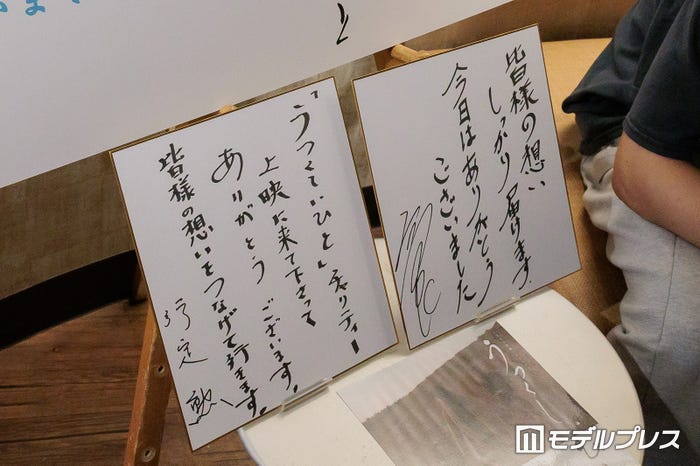 皆様の想い
しっかり届けます
今日はありがとう
ございました
「うつくしいひと」チャリティー
上映に来て下さって
ありがとうございます。
皆様の想いをつなげて行きます。
行定 勲
うつくし
モデルプレス